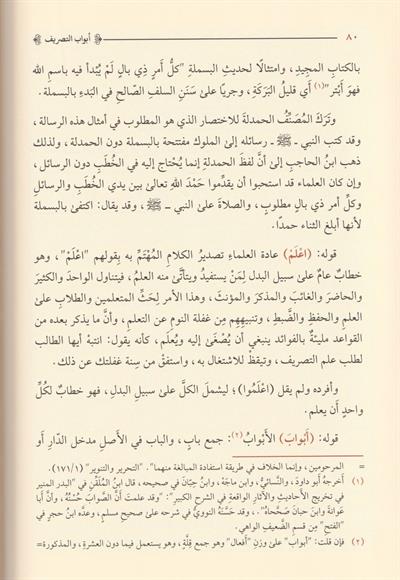 ٨٠ ﴿ أبواب التصريف ﴾
بالكتابِ المجيدِ، وامتثالًا لحديثِ البسملةِ "كلُّ أمرٍ ذِي بالٍ لَمْ يُبْدأ فيه باسمِ الله
فهوَ أبْتر"(١) أي قليلُ البَرَكَةِ، وجريًا علىٰ سَنَنِ السلفِ الصَّالحِ في البَدءِ بالبسملة.
وتَرَكَ المصَنِّفُ الحمدلةَ للاختصارِ الذي هو المطلوب في أمثال هذه الرسالة،
وقد كتب النبي ـ ﷺ ـ رسائله إلىٰ الملوك مفتتحة بالبسملة دون الحمدلة، ولذلك
ذهب ابنُ الحاجبِ إلىٰ أنَّ لفظَ الحمدلةِ إنما يُحْتاج إليه في الخُطَبِ دون الرسائل،
وإن كان العلماء قد استحبوا أن يقدِّموا حَمْدَ اللهِ تعالىٰ بين يدي الخُطَبِ والرسائلِ
وكلِّ أمر ذي بالٍ مطلوبٍ، والصلاةَ علىٰ النبي ـ ﷺ، وقد يقال: اكتفىٰ بالبسملة
لأنها أبلغ الثناء حمدًا.
قوله: (اعْلَمْ) عادة العلماءِ تصديرُ الكلامِ المُهْتَمِّ بِه بِقولهم "اعْلَمْ"، وهو
خطابٌ عامٌّ علىٰ سبيل البدل لِمَنْ يستفيدُ ويتأتَّىٰ منه العلمُ، فيتناول الواحدَ والكثيرَ
والحاضرَ والغائبَ والمذكرَ والمؤنثَ، وهذا الأمر لِحثِّ المتعلمين والطلابِ علىٰ
العلمِ والحفظِ والضَّبطِ، وتنبيههِم مِن غفلة النومِ عن التعلم، وأنَّ ما يذكر بعده من
القواعد مليئةٌ بالفوائد ينبغي أن يُصْغَىٰ إليه ويُعلَم، كأنه يقول: انتبهْ أيها الطالب
لطلب علم التصريف، وتيقظْ للاشتغال به، واستفقْ من سِنة غفلتك عن ذلك.
وأفرده ولم يقل (اعْلَمُوا)؛ ليشملَ الكلَّ علىٰ سبيل البدلِ، فهو خطابٌ لكُلِّ
واحدٍ أن يعلم.
قوله: (أبوابَ) الأَبْوابُ(٢): جمع بابٍ، والباب في الأَصلِ مدخل الدَّارِ أو
= المرحومين، وإنما الخلاف في طريقة استفادة المبالغة منهما". "التحرير والتنوير" (١/ ١٧١)
(١) أخرجهُ أبو داودَ، والنَّسائيُّ، وابن ماجَهْ، وابنُ حِبّانَ في صحيحه، قال ابنُ المُلَقِّنِ في "البدر المنير
في تخريج الأحاديثِ والآثارِ الواقعةِ في الشرح الكبيرِ": "وقد علمتَ أنَّ الصَّوابَ حُسْنُهُ، وأنَّ أبا
عَوانةَ وابنَ حبانَ صَحَّحاهُ". وقد حَسَّنَهُ النوويُّ في شرحه علىٰ صحيحِ مسلمٍ، وعدَّه ابنُ حجرٍ في
"الفتح" مِن قسمِ الضَّعيفِ الواهي.
(٢) فإن قلتَ: "أبواب" علىٰ وزنِ "أفعال" وهو جمع قِلَّةٍ، وهو يستعمل فيما دون العشرةِ، والمذكورة=